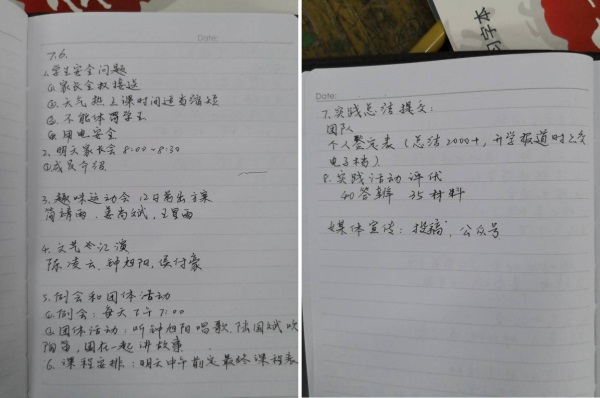 Date:
7.6.
1.学生安全问题
①家长全权接送
②天气热上课时间适当缩短
③.不能体罚学生
④用电安全
2. 明天家长会 8:00~8:30
①成员介绍
3. 趣味运动会 12日前出方案
简靖雨.姜尚斌,王星雨
4. 文艺会汇演
陈凌云,钟旭阳,侯付豪
5.例会和团体活动
①例会:每天下午7:00
②团体活动:听钟旭阳唱歌,陆国斌吹
陶笛,围在一起讲故事
6.课程安排:明天中午前定最终课程表
Date:
7.实践总结提交:
团队
个人鉴定表(总结2000+,开学报道时上交
电子档)
8.实践活动评优
40答辩 35材料
媒体宣传:投稿,公众号